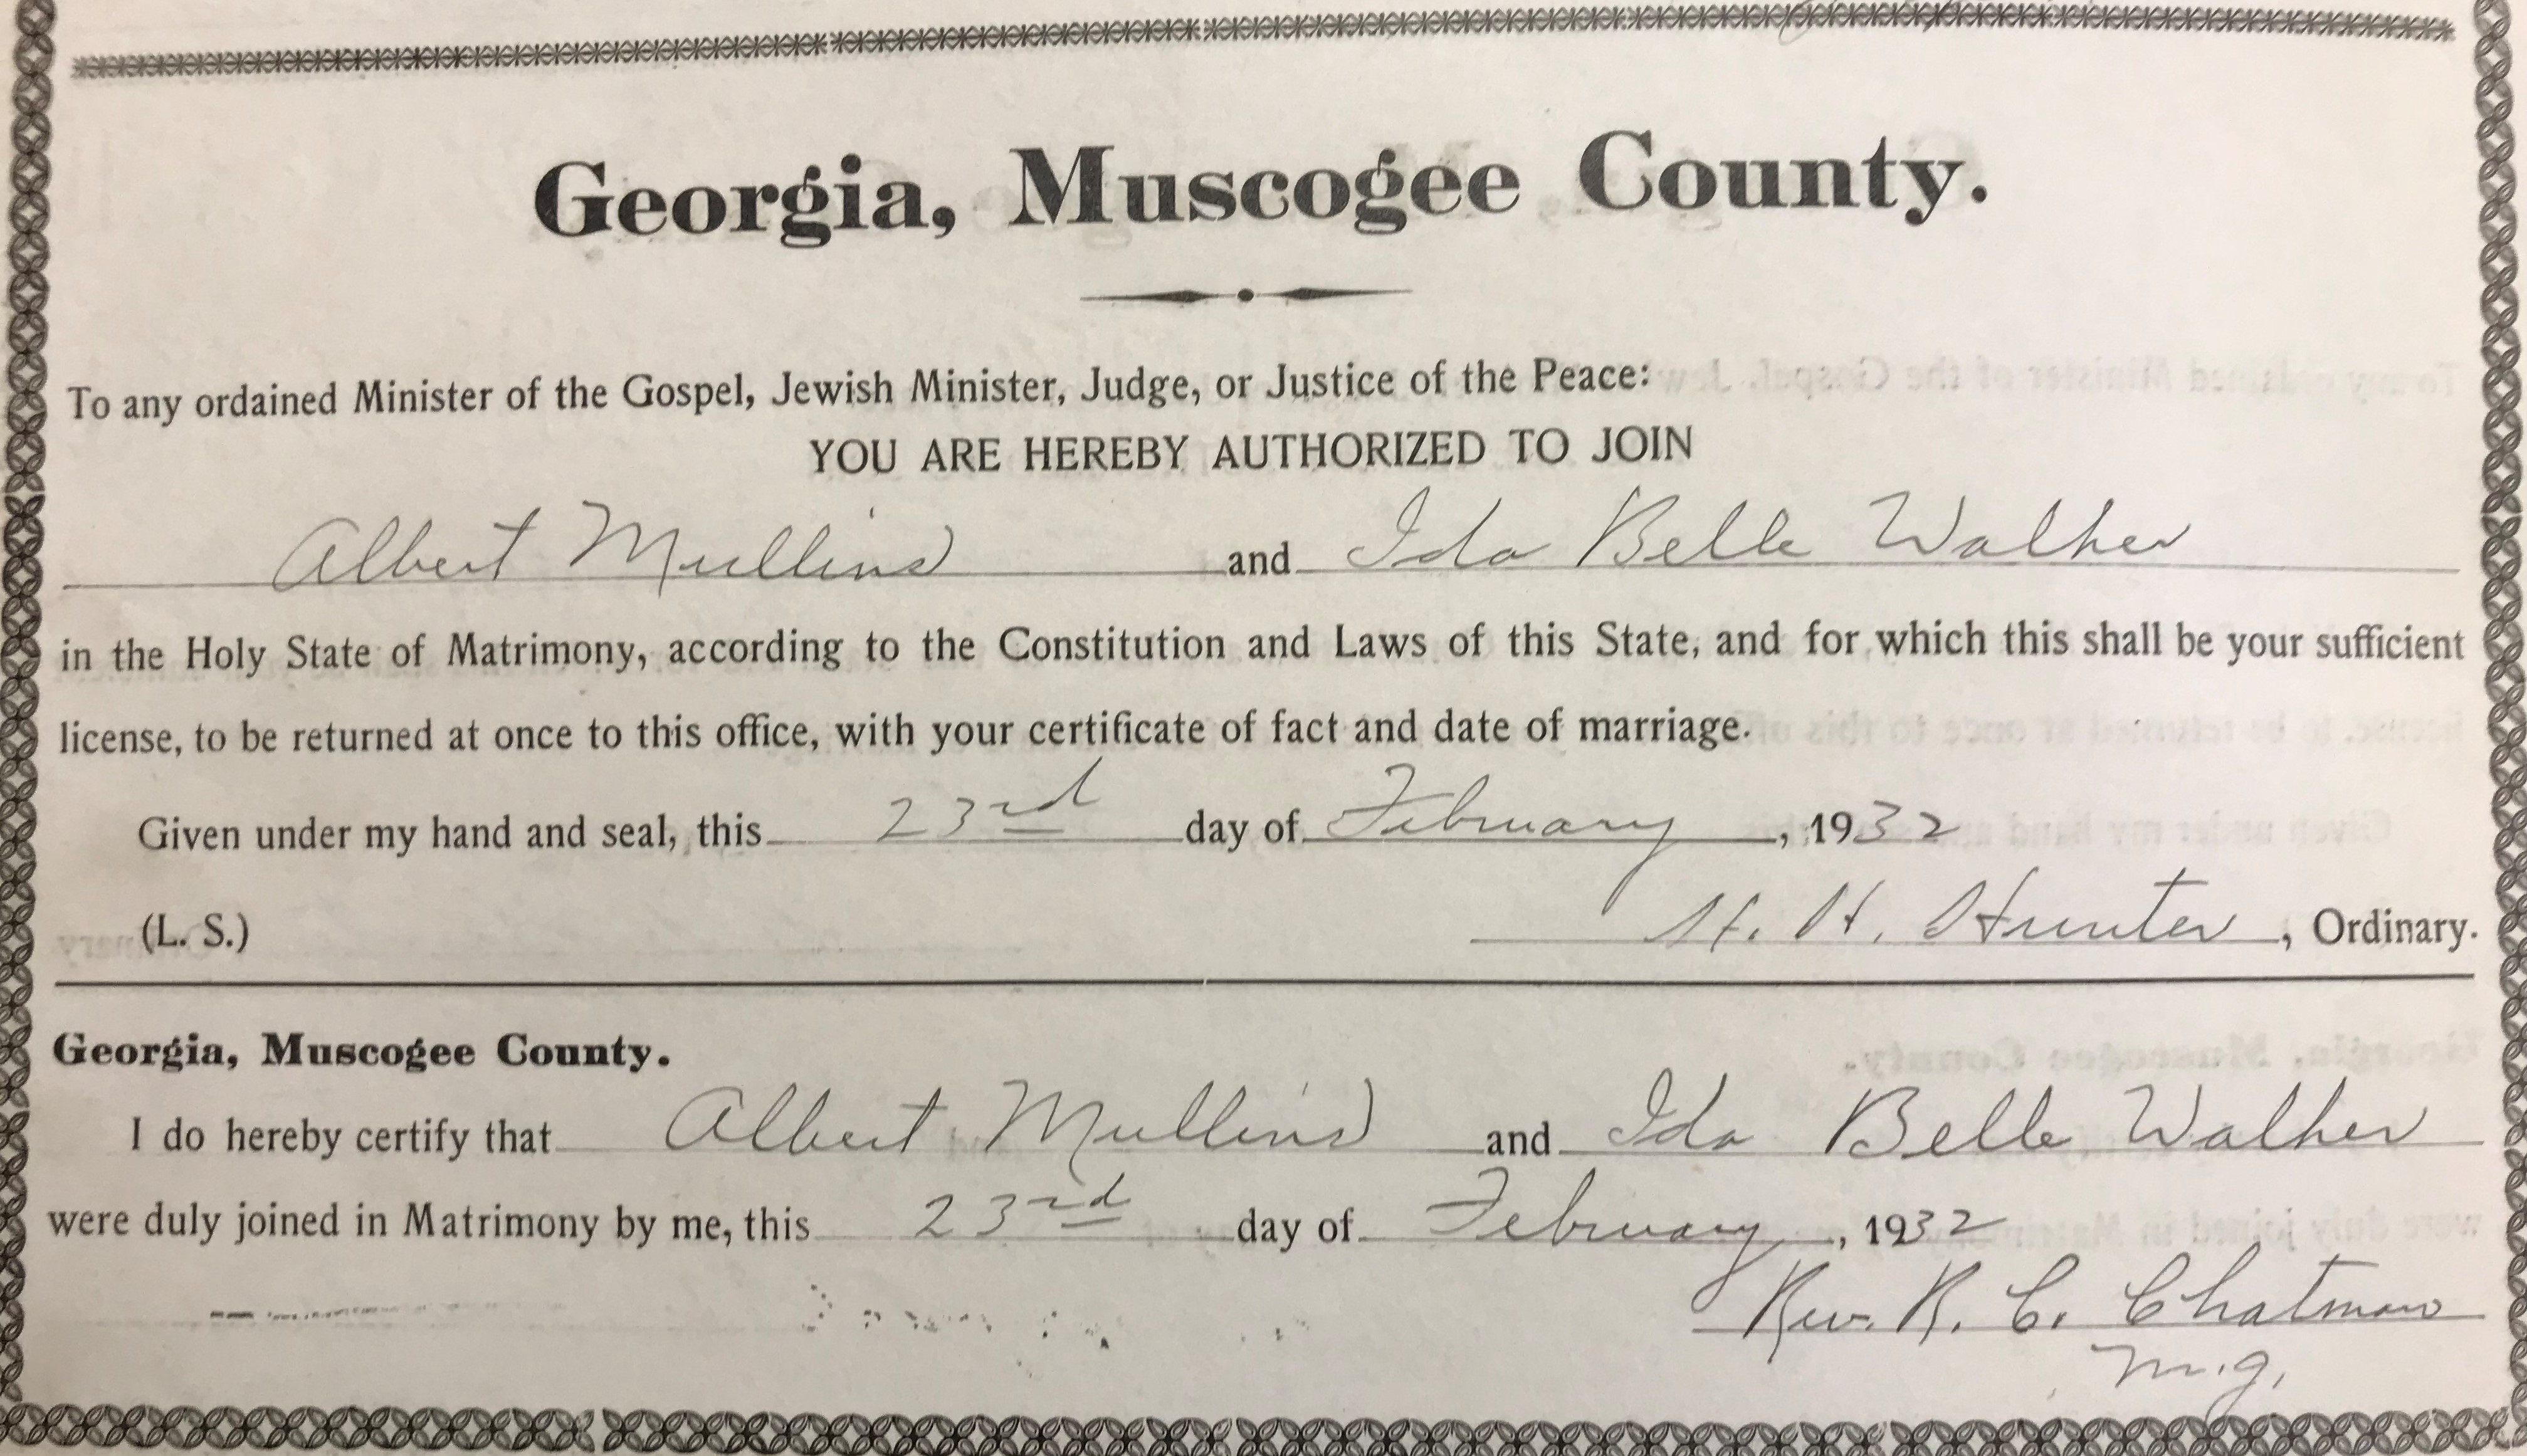 Georgia, Muscogee County.
To any ordained Minister of the Gospel, Jewish Minister, Judge, or Justice of the Peace:
YOU ARE HEREBY AUTHORIZED TO JOIN
Albert Mullins and Ida Belle Walker
in the Holy State of Matrimony, according to the Constitution and Laws of this State, and for which this shall be your sufficient
license, to be returned at once to this office, with your certificate of fact and date of marriage.
Given under my hand and seal, this 23rd day of February, 1932
(L. S.) H. H. Hunter, Ordinary.
Georgia, Muscogee County.
I do hereby certify that Albert Mullins and Ida Belle Walker
were duly joined in Matrimony by me, this 23rd day of February, 1932
Rev. R. C. Chatman
M.G.